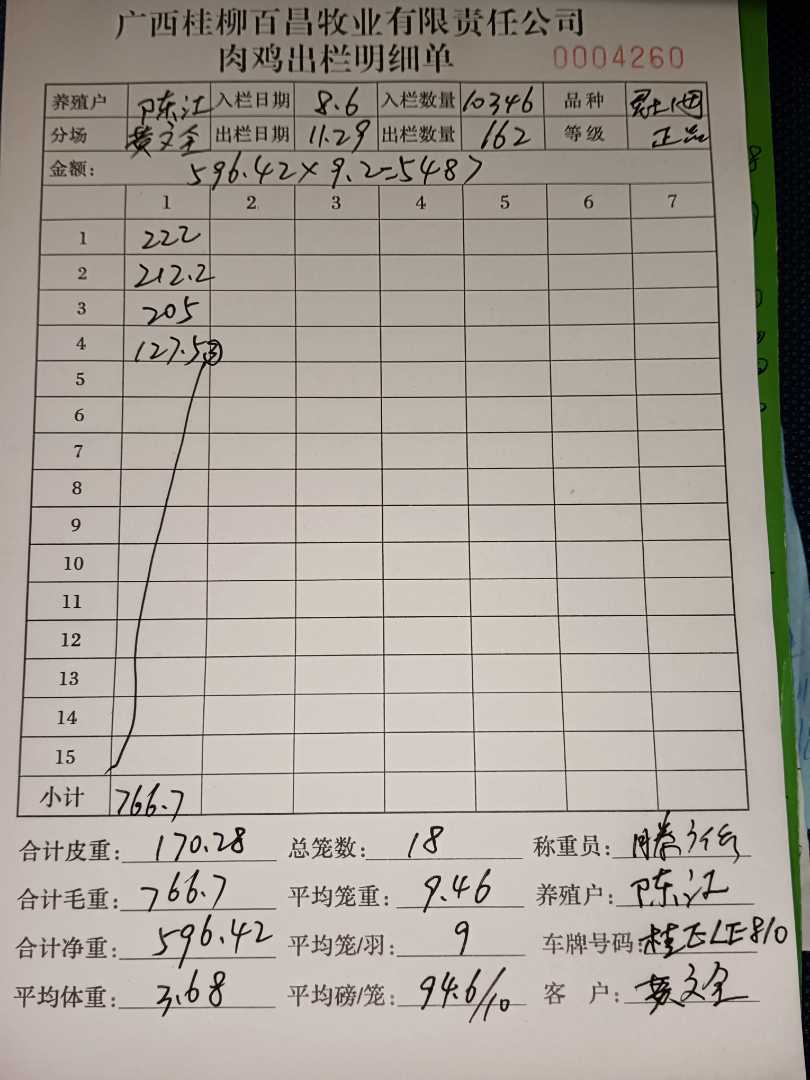 广西桂柳百昌牧业有限责任公司
肉鸡出栏明细单 0004260
养殖户 陈江 入栏日期 8.6 入栏数量 10346 品种
分场 黄文全 出栏日期 11.29 出栏数量 162 等级 正品
金额: 596.42×9.2=5487
1 2 3 4 5 6 7
1 222
2 212.2
3 205
4 127.5 ③
5
6
7
8
9
10
11
12
13
14
15
小计 766.7
合计皮重: 170.28 总笼数: 18 称重员:
合计毛重: 766.7 平均笼重: 9.46 养殖户: 陈江
合计净重: 596.42 平均笼/羽: 9 车牌号码: 桂ELE810
平均体重: 3.68 平均磅/笼: 94.6/10 客 户: 黄文全